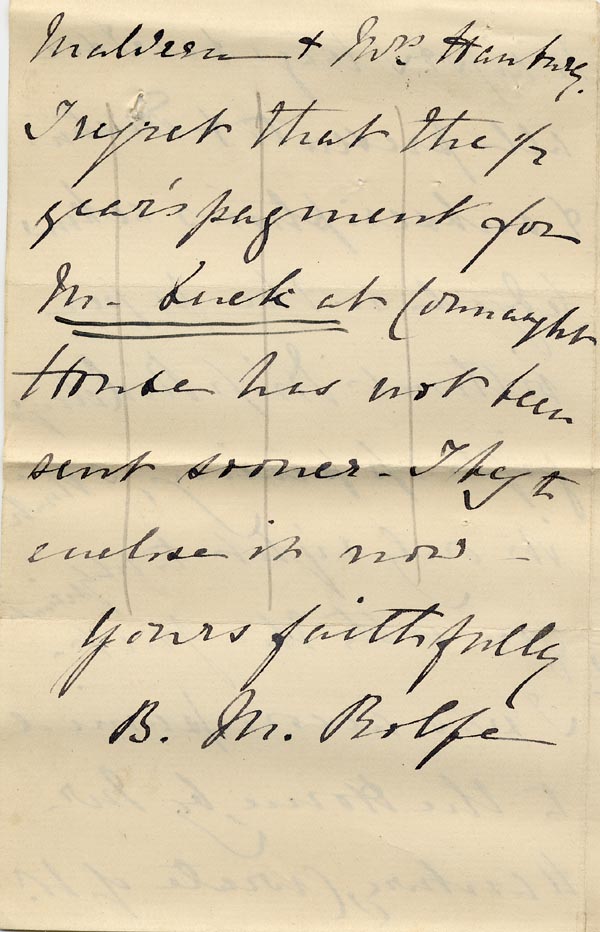 Malvern & Mrs Hanbury.
I regret that the ½
year's payment for
M- Luck at Connaught
House has not been
sent sooner - I beg to
enclose it now -
Yours faithfully
B. M. Rolfe